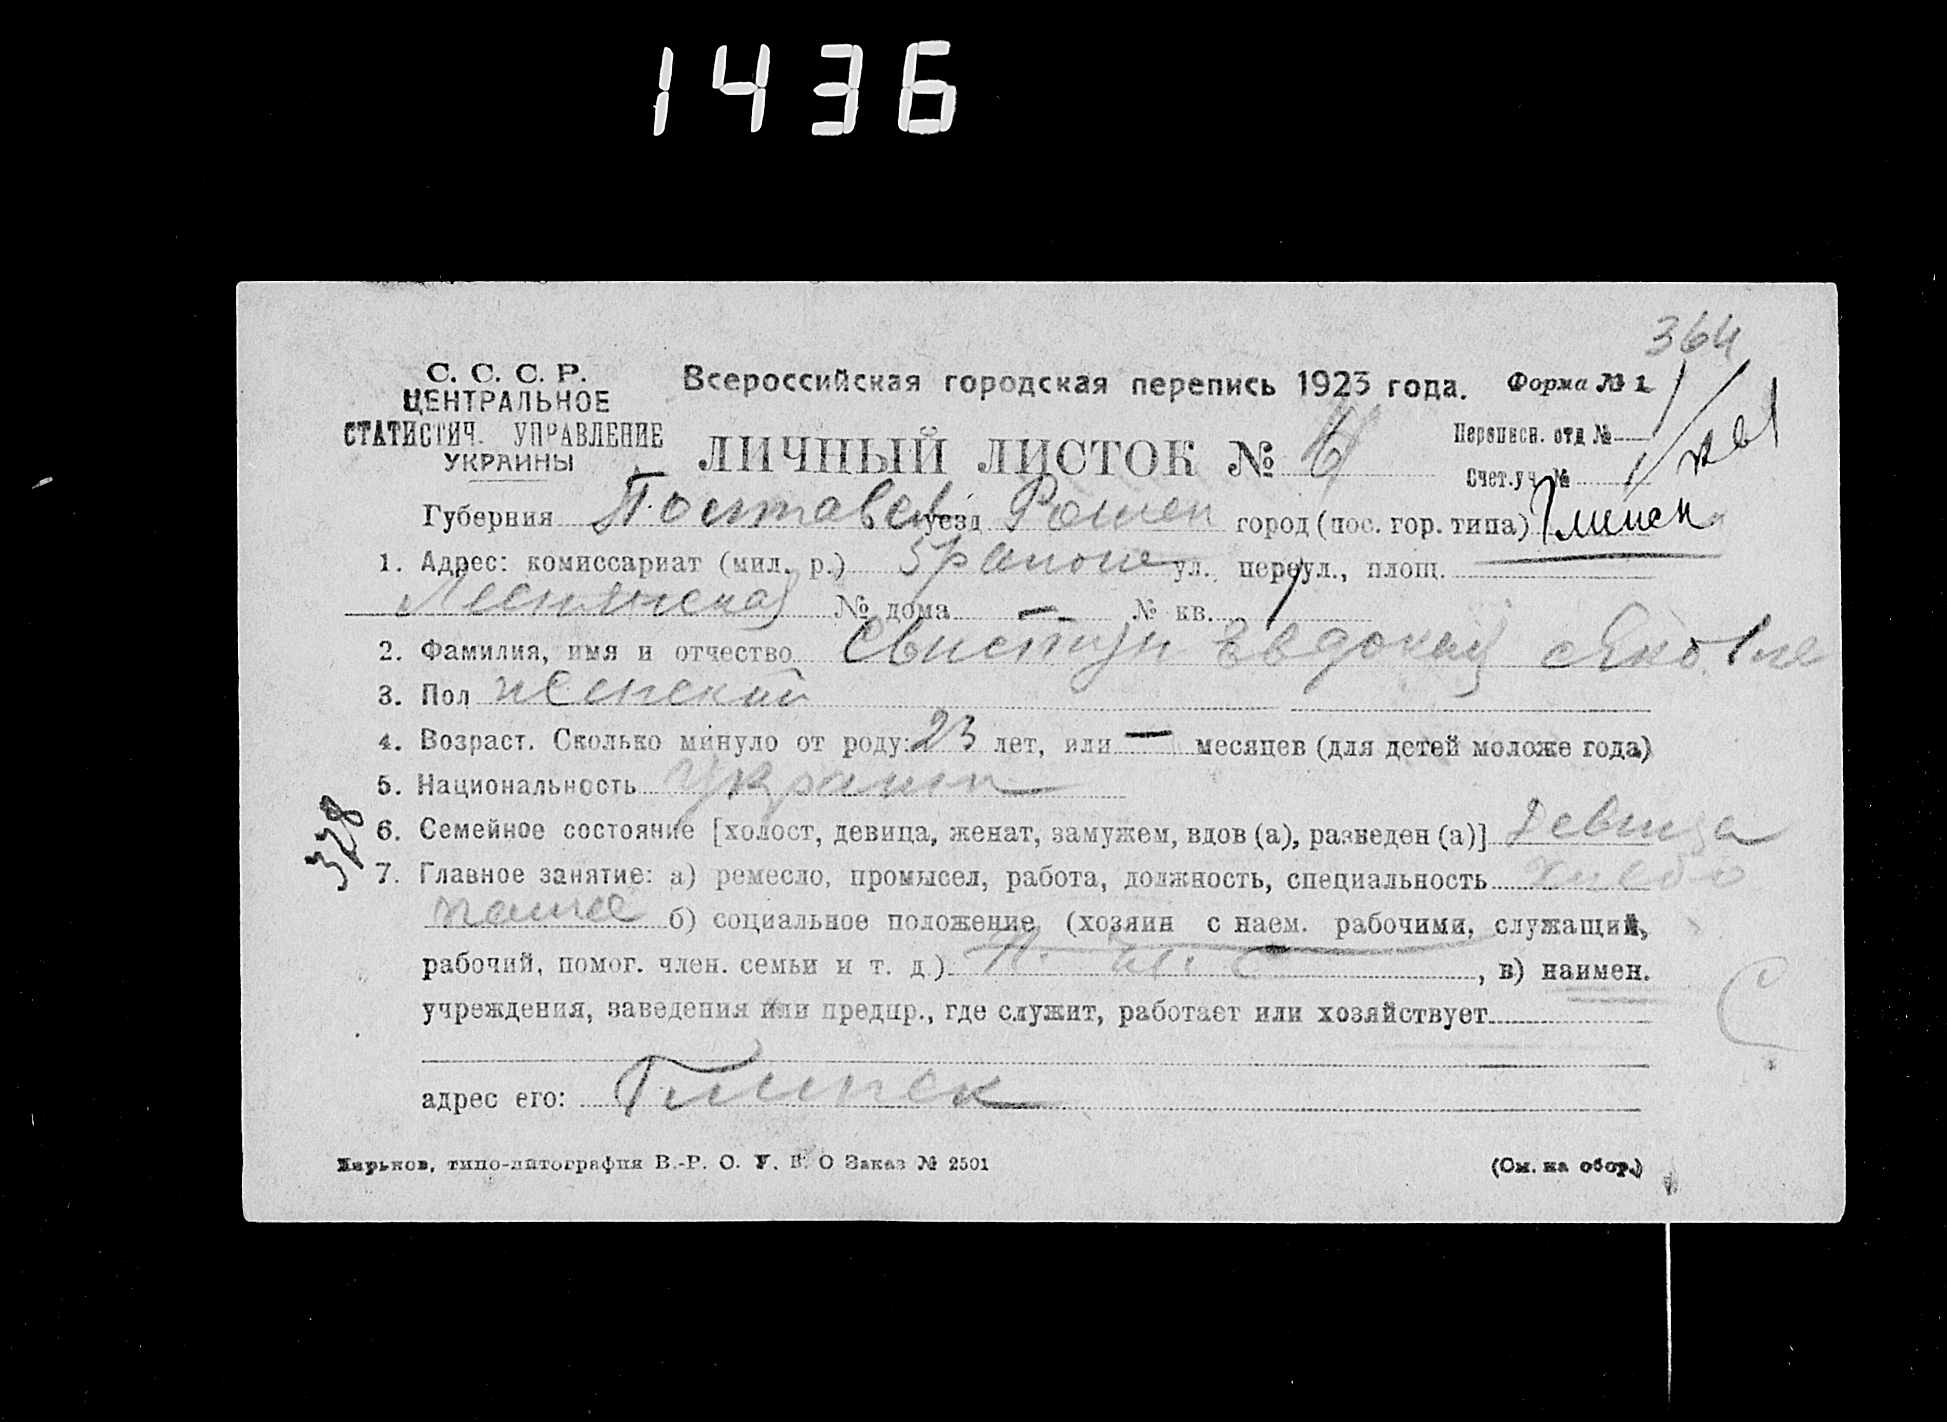 1436
364
С. С. С. Р.
ЦЕНТРАЛЬНОЕ
СТАТИСТИЧ. УПРАВЛЕНИЕ
УКРАИНЫ
Всероссийская городская перепись 1923 года. Форма № 1
ЛИЧНЫЙ ЛИСТОК № 6
Переписн. отд №
Счет.уч. №
Губерния Полтавск уезд Ромен город (пос. гор. типа) Глинск
1. Адрес: комиссариат (мил. р.) 5 районе ул. переул., площ.
№ дома — № кв.
2. Фамилия, имя и отчество Свистун Евдокия Яковле
3. Пол женский
4. Возраст. Сколько минуло от роду: 23 лет, или — месяцев (для детей моложе года)
5. Национальность Украин
6. Семейное состояние [холост, девица, женат, замужем, вдов (а), разведен (а)] девица
328
7. Главное занятие: а) ремесло, промысел, работа, должность, специальность хлебо
паше б) социальное положение (хозяин с наем. рабочими, служащий,
рабочий, помог. член. семьи и т. д.) П. чл. С , в) наимен.
учреждения, заведения или предпр., где служит, работает или хозяйствует
С
адрес его: Глинск
Харьков, типо-литография В.-Р. О. У. В. О Заказ № 2501
(См. на обор.)